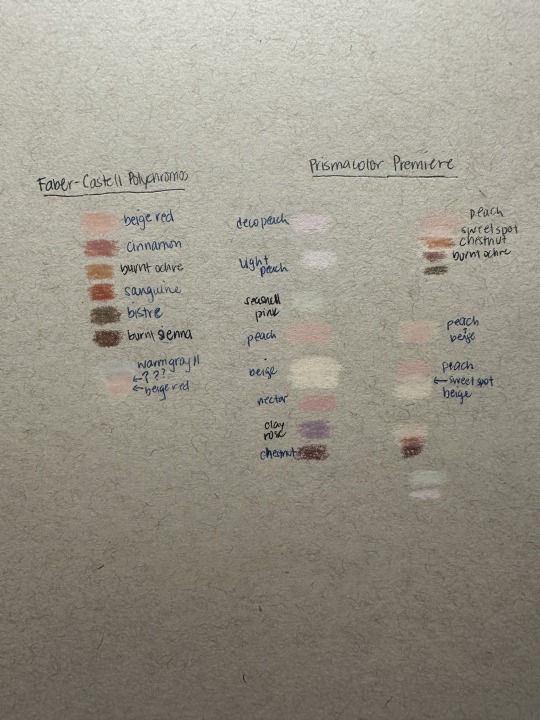 Faber-Castell Polychromos
beige red
cinnamon
burnt ochre
sanguine
bistre
burnt sienna
warm gray II
←???
←beige red
Prismacolor Premiere
deco peach
light peach
seashell
pink
peach
beige
nectar
clay
rose
chestnut
peach
sweet spot
chestnut
burnt ochre
peach
beige
peach
←sweet spot
beige